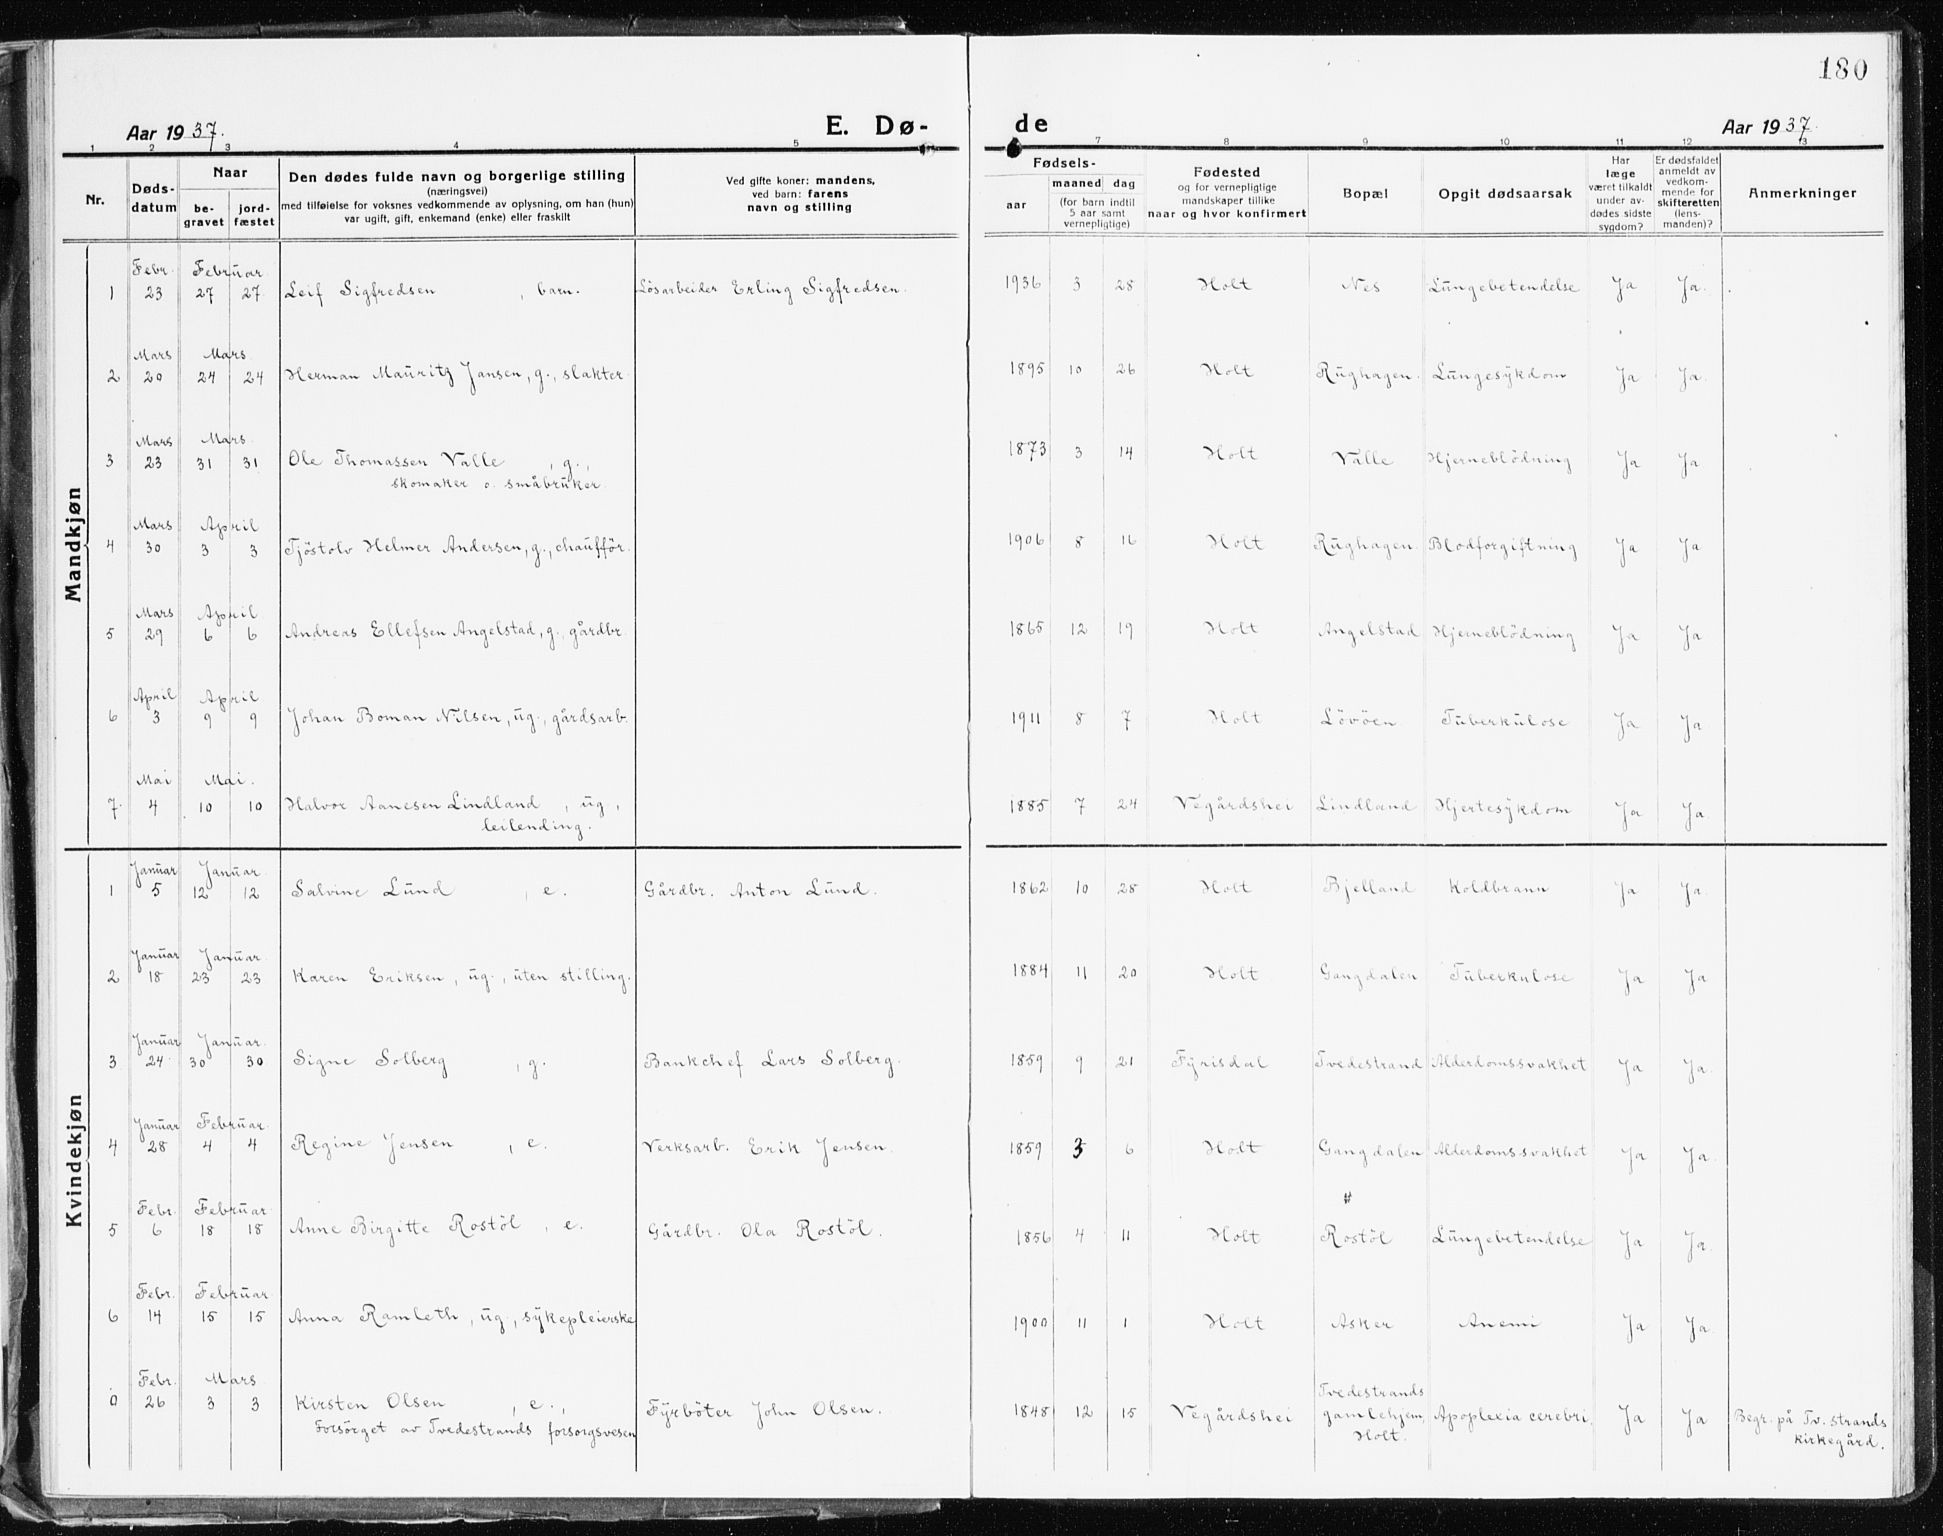 180
Aar 1937.
E. Dø-
de
Aar 1937.
1 2 3 4 5
7 8 9 10 11 12 13
Nr.
Døds-
datum
Naar
be-
gravet
jord-
fæstet
Den dødes fulde navn og borgerlige stilling
(næringsvei)
med tilføielse for voksnes vedkommende av oplysning, om han (hun)
var ugift, gift, enkemand (enke) eller fraskilt
Ved gifte koner: mandens,
ved barn: farens
navn og stilling
Fødsels-
aar
maaned dag
(for barn indtil
5 aar samt
vernepligtige)
Fødested
og for vernepligtige
mandskaper tillike
naar og hvor konfirmert
Bopæl
Opgit dødsaarsak
Har
læge
været tilkaldt
under av-
dødes sidste
sygdom?
Er dødsfaldet
anmeldt av
vedkom-
mende for
skifteretten
(lens-
manden)?
Anmerkninger
Mandkjøn
Febr. Februar.
1 23 27 27 Leif Sigfredsen , barn. Løsarbeider Erling Sigfredsen. 1936 3 28 Holt Nes Lungebetendelse Ja Ja.
Mars Mars.
2 20 24 24 Herman Mauritz Jansen, g., slakter. 1895 10 26 Holt Rughagen. Lungesykdom Ja Ja.
Mars Mars.
3 23 31 31 Ole Thomassen Valle , g., 1873 3 14 Holt Valle Hjerneblödning Ja Ja
skomaker o. småbruker.
Mars April
4 30 3 3 Tjöstolv Helmer Andersen, g., chaufför. 1906 8 16 Holt Rughagen. Blodforgiftning Ja Ja
Mars April
5 29 6 6 Andreas Ellefsen Angelstad, g., gårdbr. 1865 12 19 Holt Angelstad Hjerneblödning Ja Ja
April April
6 3 9 9 Johan Boman Nilsen, ug., gårdsarb. 1911 8 7 Holt Lövöen. Tuberkulose Ja Ja
Mai Mai.
7. 4 10 10 Halvor Aanesen Lindland , ug., 1885 7 24 Vegårdshei Lindland Hjertesykdom Ja Ja.
leilending.
Kvindekjøn
Januar Januar.
1 5 12 12 Salvine Lund , e. Gårdbr. Anton Lund. 1862 10 28 Holt Bjelland Koldbrann Ja Ja.
Januar Januar.
2 18 23 23 Karen Eriksen, ug., uten stilling. 1884 11 20 Holt Gangdalen Tuberkulose Ja Ja
Januar Januar.
3 24 30 30 Signe Solberg , g. Bankchef Lars Solberg. 1859 9 21 Fyrisdal Tvedestrand Alderdomssvakhet Ja Ja.
Januar Februar.
4 28 4 4 Regine Jensen , e. Verksarb. Erik Jensen. 1859 3 6 Holt Gangdalen Alderdomssvakhet Ja Ja.
Febr. Februar.
5 6 18 18 Anne Birgitte Rostöl , e. Gårdbr. Ola Rostöl. 1856 4 11 Holt Rostöl Lungebetendelse Ja Ja.
Febr. Februar.
6 14 15 15 Anna Ramleth, ug., sykepleierske 1900 11 1 Holt Asker Anemi Ja Ja.
Febr. Mars.
0 26 3 3 Kirsten Olsen , e., Fyrböter John Olsen. 1848 12 15 Vegårdshei Tvedestrands
gamlehjem, Apoplexia cerebri. Ja Ja Begr. på Tv. strands
Forsörget av Tvedestrands forsorgsvesen Holt. kirkegård.